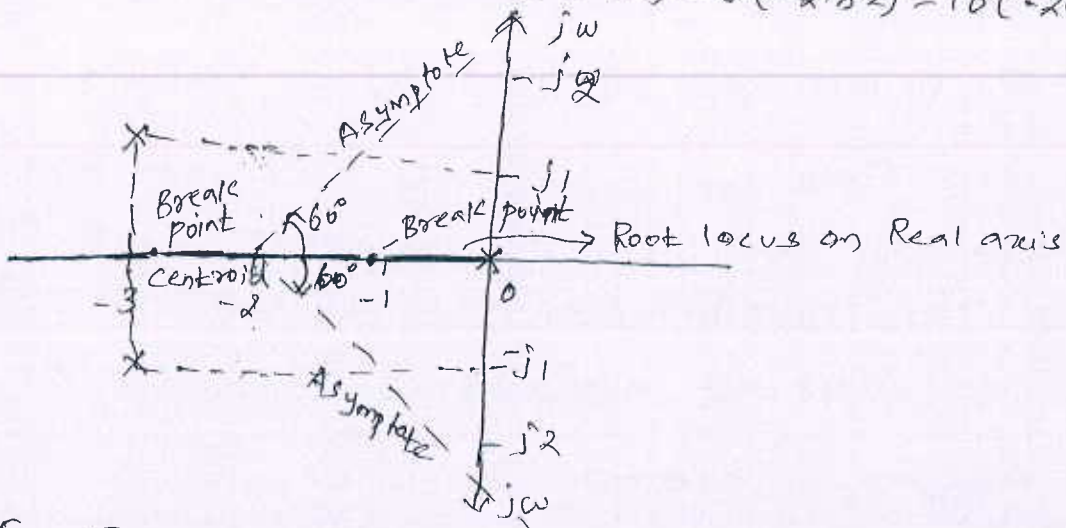 (-2.82) - 10(-2
jω
j2
Asymptote
j1
Break point
60°
Break point
Root locus on Real axis
centroid
60°
-3
-2
-1
0
-j1
Asymptote
-j2
jω